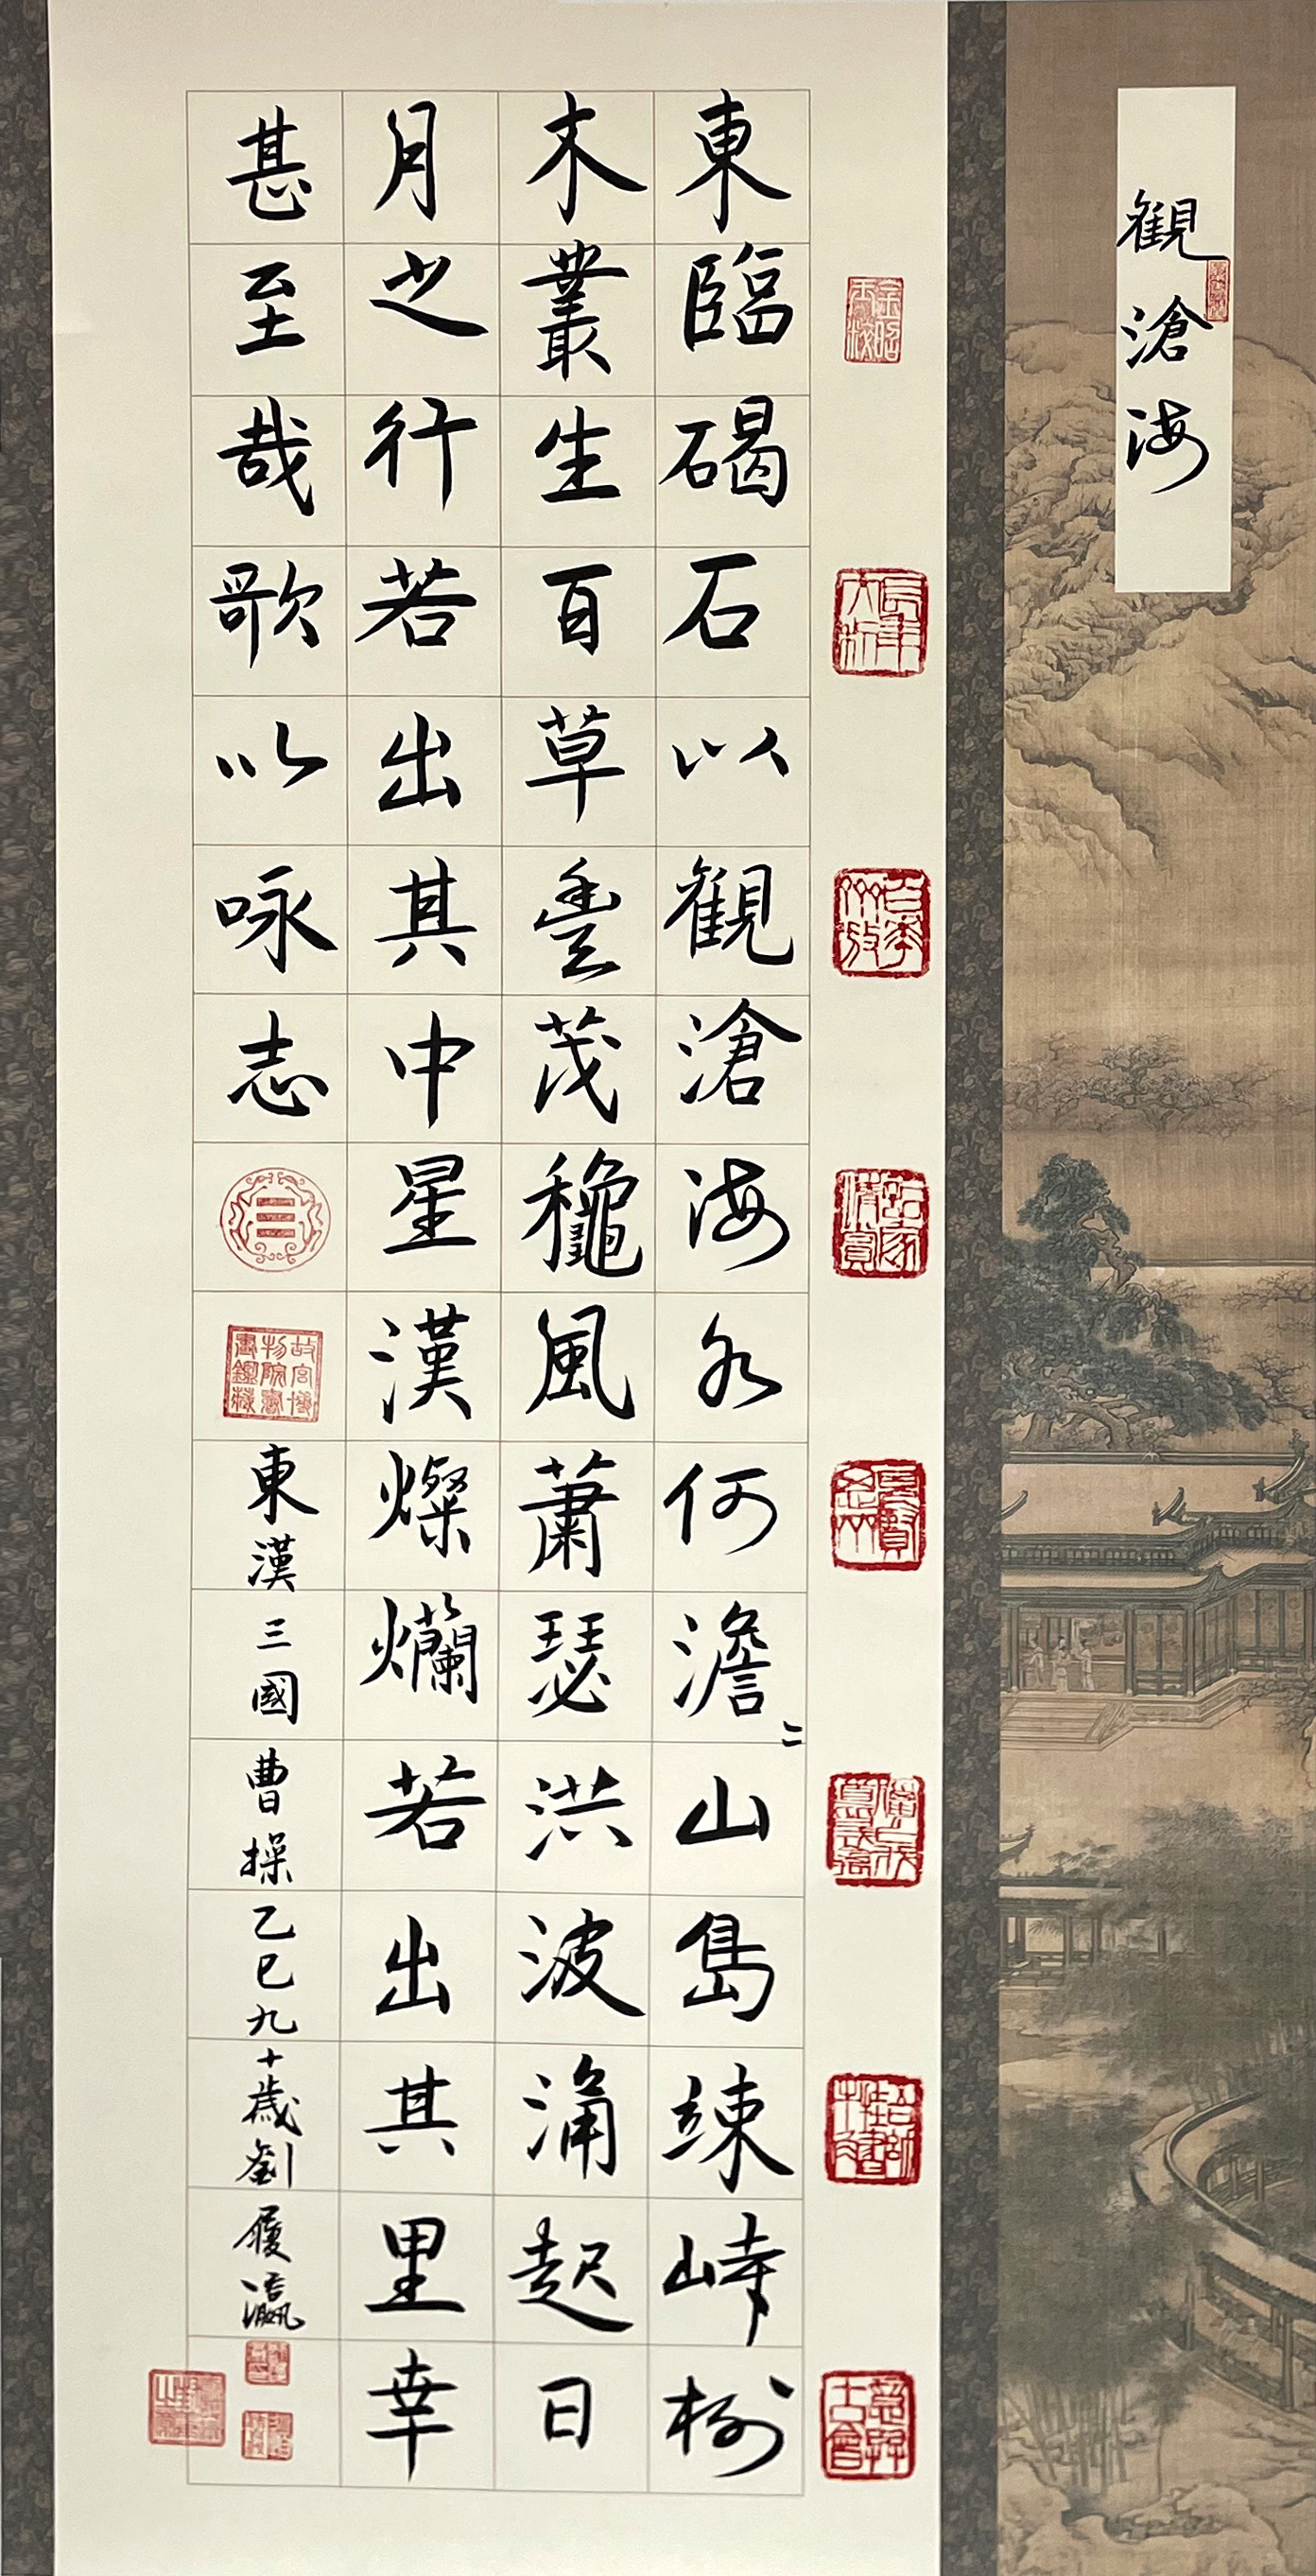 観滄海
東臨碣石以観滄海水何澹〻山島竦峙樹
木叢生百草豊茂穐風蕭瑟洪波涌起日
月之行若出其中星漢燦爛若出其里幸
甚至哉歌以咏志
東漢三國曹操乙巳九十歲劉履瀛